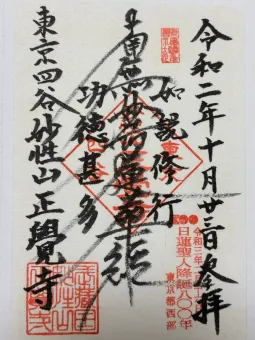 令和二年十月廿三日参拝
如説修行
南無妙法蓮華経
功徳甚多
東京四谷妙性山正覺寺
令和三年
日蓮聖人降誕八〇〇年
東京都西部